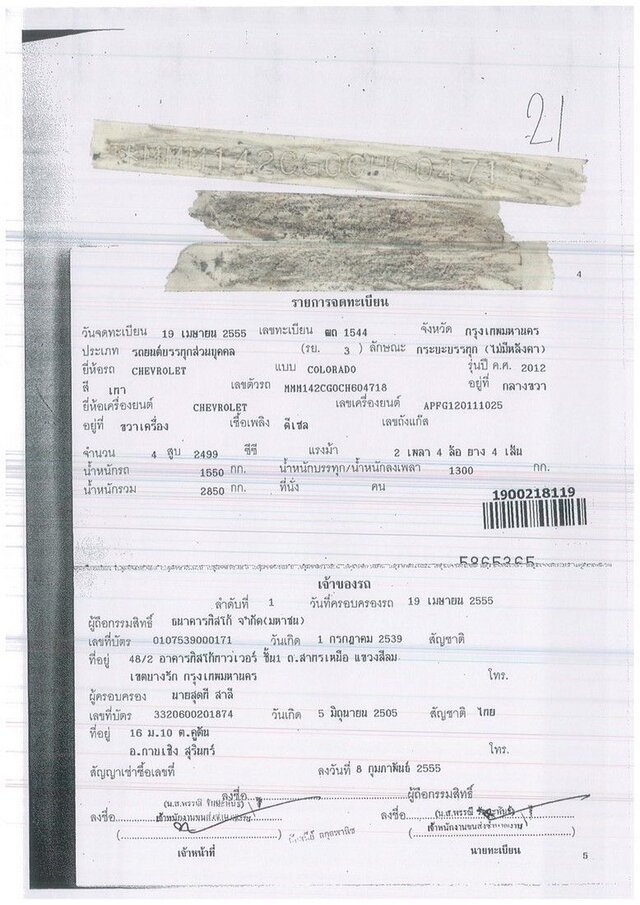 21
4
รายการจดทะเบียน
วันจดทะเบียน 19 เมษายน 2555 เลขทะเบียน ผถ 1544 จังหวัด กรุงเทพมหานคร
ประเภท รถยนต์บรรทุกส่วนบุคคล (รย. 3 ) ลักษณะ กระบะบรรทุก (ไม่มีหลังคา)
ยี่ห้อรถ CHEVROLET แบบ COLORADO รุ่นปี ค.ศ. 2012
สี เทา เลขตัวรถ MMM142CG0CH604718 อยู่ที่ กลางขวา
ยี่ห้อเครื่องยนต์ CHEVROLET เลขเครื่องยนต์ APFG120111025
อยู่ที่ ขวาเครื่อง เชื้อเพลิง ดีเซล เลขถังแก๊ส
จำนวน 4 สูบ 2499 ซีซี แรงม้า 2 เพลา 4 ล้อ ยาง 4 เส้น
น้ำหนักรถ 1550 กก. น้ำหนักบรรทุก/น้ำหนักลงเพลา 1300 กก.
น้ำหนักรวม 2850 กก. ที่นั่ง คน
1900218119
เจ้าของรถ
ลำดับที่ 1 วันที่ครอบครองรถ 19 เมษายน 2555
ผู้ถือกรรมสิทธิ์ ธนาคารทิสโก้ จำกัด(มหาชน)
เลขที่บัตร 0107539000171 วันเกิด 1 กรกฎาคม 2539 สัญชาติ
ที่อยู่ 48/2 อาคารทิสโก้ทาวเวอร์ ชั้น1 ถ.สาทรเหนือ แขวงสีลม
เขตบางรัก กรุงเทพมหานคร โทร.
ผู้ครอบครอง นายสุดที สาลี
เลขที่บัตร 3320600201874 วันเกิด 5 มิถุนายน 2505 สัญชาติ ไทย
ที่อยู่ 16 ม.10 ต.คูตัน
อ.กาบเชิง สุรินทร์ โทร.
สัญญาเช่าซื้อเลขที่ ลงวันที่ 8 กุมภาพันธ์ 2555
ลงชื่อ ผู้ถือกรรมสิทธิ์
ลงชื่อ ลงชื่อ
เจ้าหน้าที่ นายทะเบียน
5